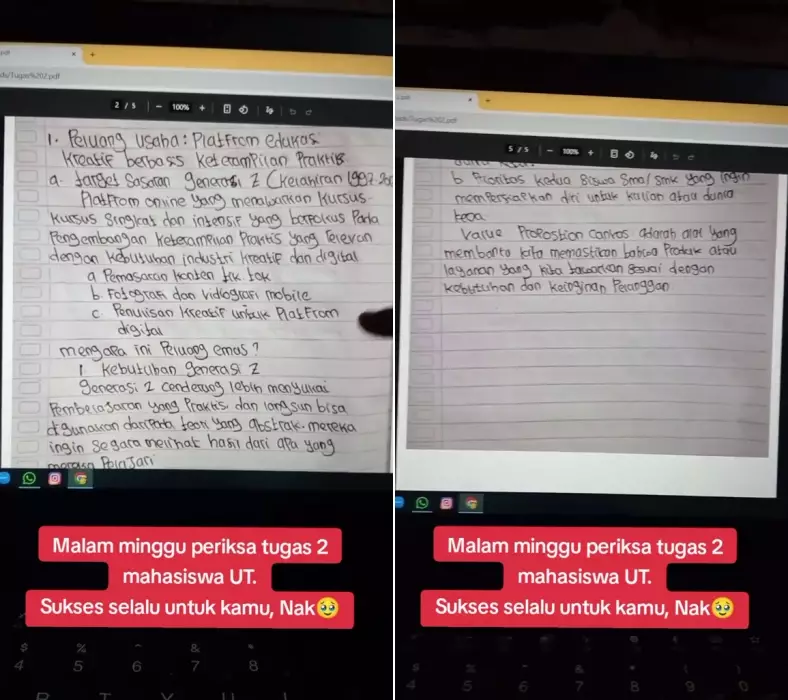 du/Tugas%202.pdf
2 / 5
100%
1. Peluang usaha: Platfrom edukasi
Kreatif berbasis keterampilan Praktis
a. target Sasaran generasi Z (Kelahiran 1997-20
Platfrom online yang menawarkan Kursus-
Kursus singkat dan intensif yang berfokus Pada
Pengembangan keterampilan Praktis yang relevan
dengan kebutuhan industri kreatif dan digital
a Pemasaran konten tik tok
b. Fotografi dan vidiografi mobile
c. Penulisan kreatif untuk Platfrom
digital
mengapa ini Peluang emas?
1. Kebutuhan generasi Z
generasi Z cenderung lebih menyukai
Pembelajaran yang Praktis dan langsun bisa
digunakan daripada teori yang abstrak. mereka
ingin segara melihat hasil dari apa yang
mereka Palajari
Malam minggu periksa tugas 2
mahasiswa UT.
Sukses selalu untuk kamu, Nak🥹
$ % & *
4 5 6 7 8
5 / 5
100%
b. Prioritas kedua siswa sma/smk yang ingin
mempersiapkan diri untuk kuliah atau dunia
kerja.
Value Propostion canvas adalah alat yang
membantu kita memastikan bahwa Produk atau
layanan yang kita tawarkan sesuai dengan
kebutuhan dan keinginan Pelanggan
Malam minggu periksa tugas 2
mahasiswa UT.
Sukses selalu untuk kamu, Nak🥹
4 5 6 7 8 9 0